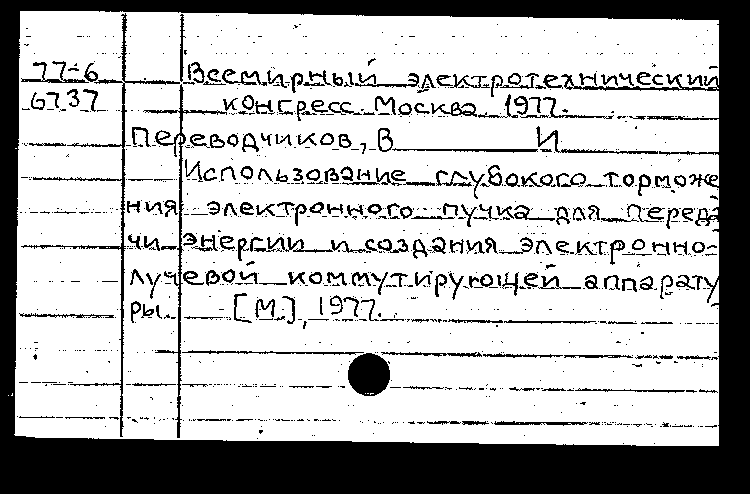 77-6 Всемирный электротехнический
6737 конгресс. Москва 1977.
Переводчиков, В И
Использование глубокого торможе
ния электронного пучка для переда
чи энергии и создания электронно-
лучевой коммутирующей аппарату
ры. [М.], 1977.